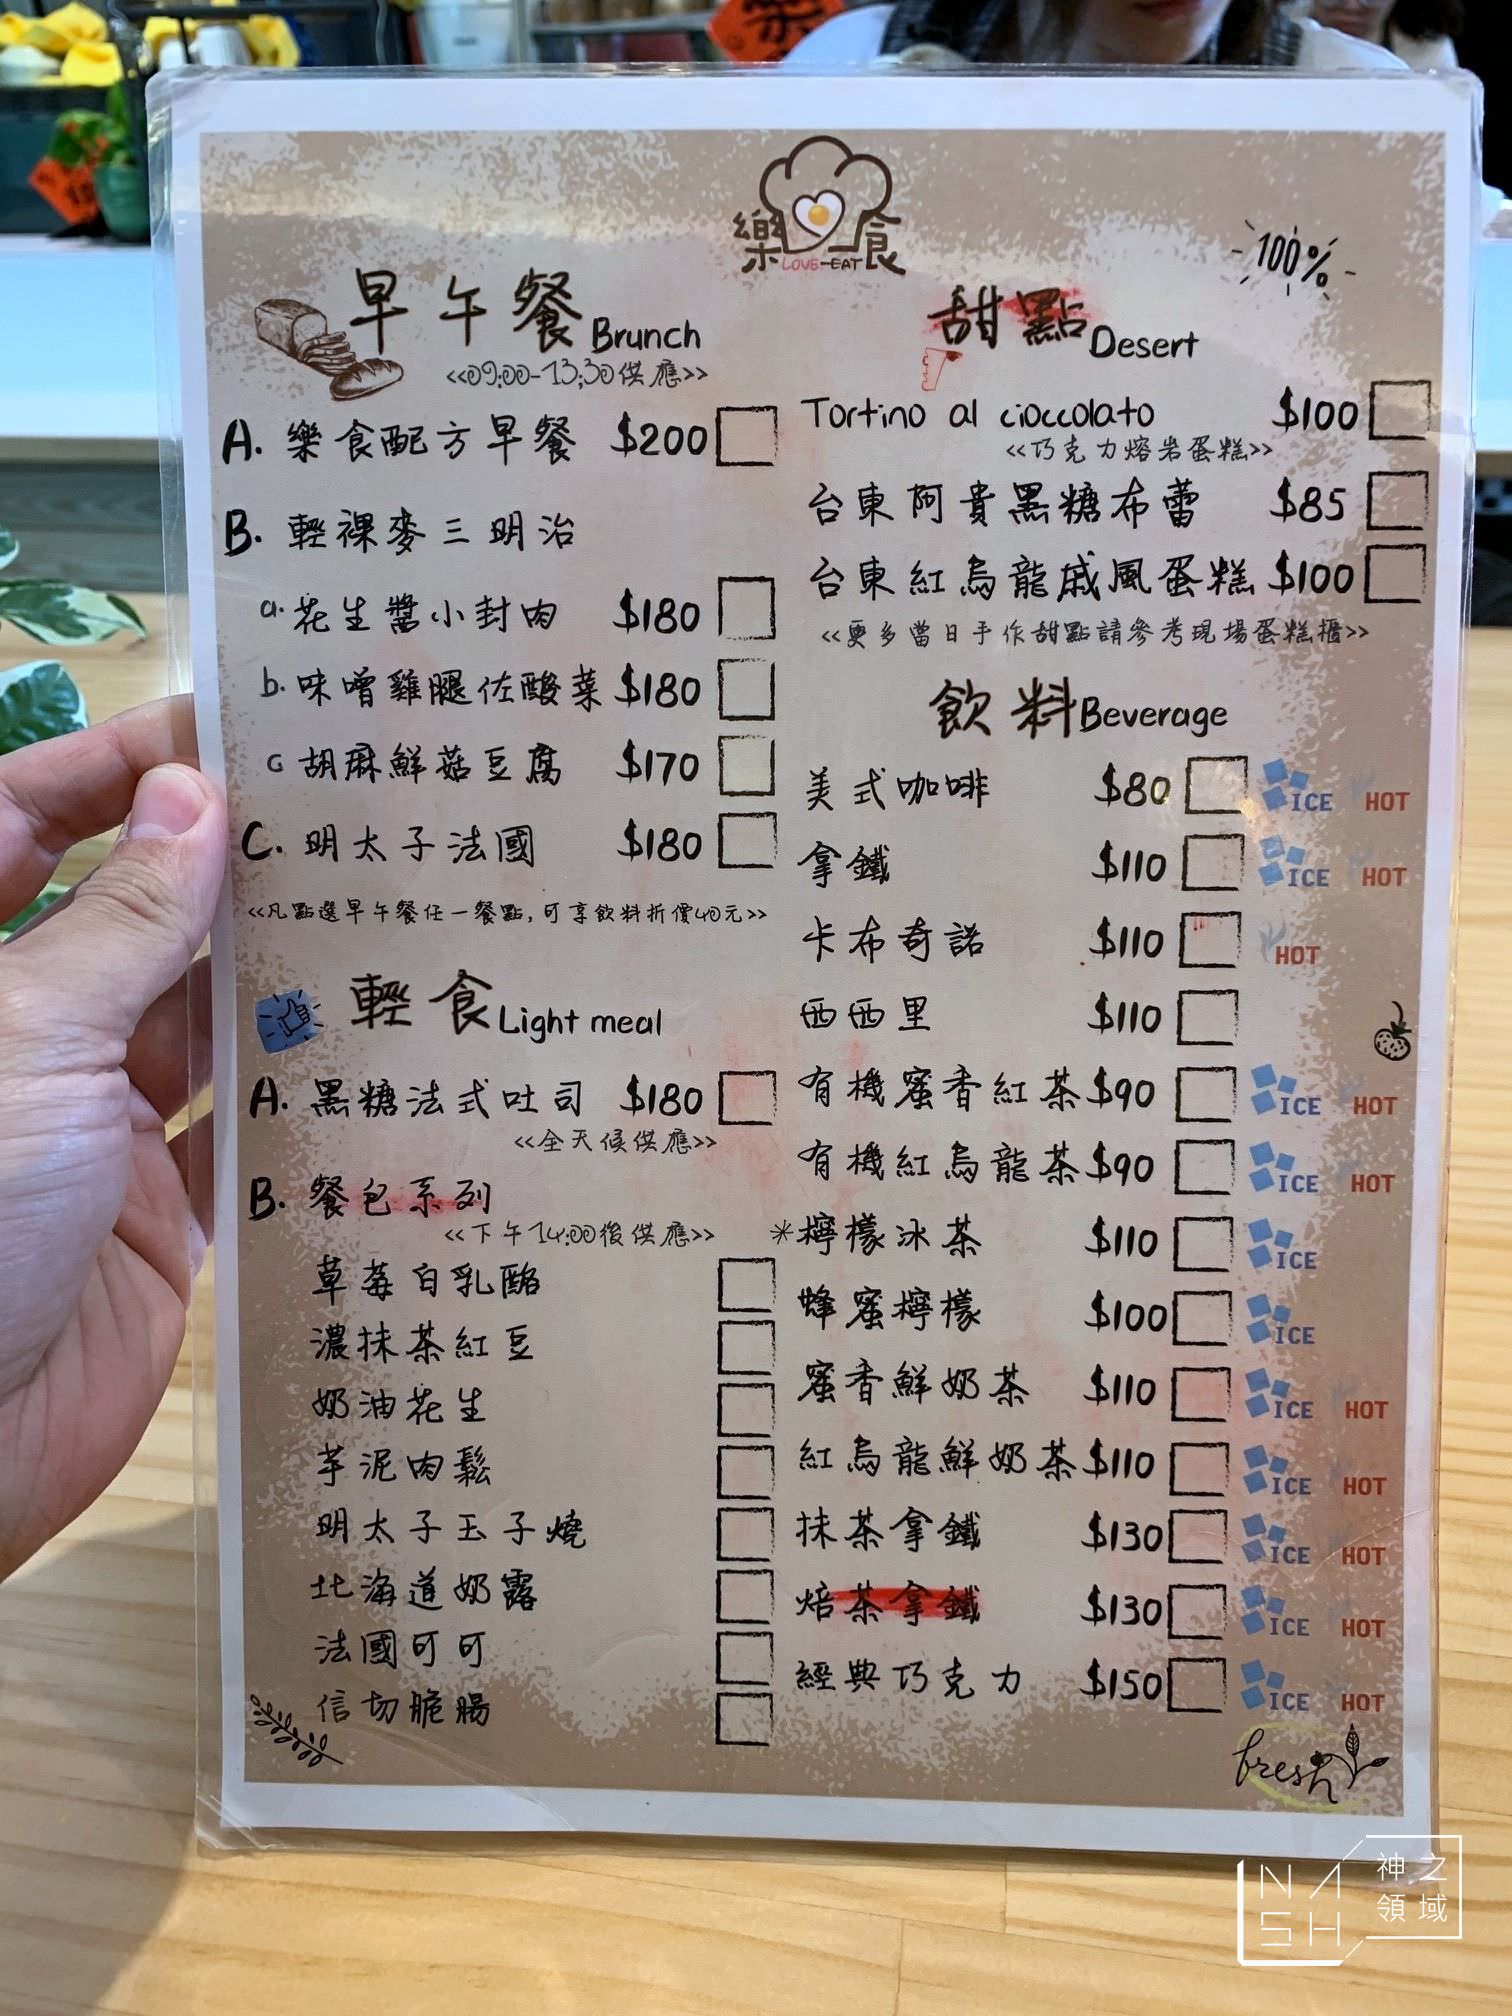 樂食
LOVE-EAT
100%
早午餐 Brunch
<<09:00-13:30供應>>
A. 樂食配方早餐 $200
B. 輕裸麥三明治
a. 花生醬小封肉 $180
b. 味噌雞腿佐酸菜 $180
c 胡麻鮮菇豆腐 $170
C. 明太子法國 $180
<<凡點選早午餐任一餐點,可享飲料折價40元>>
輕食 Light meal
A. 黑糖法式吐司 $180
<<全天候供應>>
B. 餐包系列
<<下午14:00後供應>>
草莓白乳酪
濃抹茶紅豆
奶油花生
芋泥肉鬆
明太子玉子燒
北海道奶露
法國可可
信切脆腸
甜點 Desert
Tortino al cioccolato $100
<<巧克力熔岩蛋糕>>
台東阿貴黑糖布蕾 $85
台東紅烏龍戚風蛋糕 $100
<<更多當日手作甜點請參考現場蛋糕櫃>>
飲料 Beverage
美式咖啡 $80 ICE HOT
拿鐵 $110 ICE HOT
卡布奇諾 $110 HOT
西西里 $110
有機蜜香紅茶 $90 ICE HOT
有機紅烏龍茶 $90 ICE HOT
*檸檬冰茶 $110 ICE
蜂蜜檸檬 $100 ICE
蜜香鮮奶茶 $110 ICE HOT
紅烏龍鮮奶茶 $110 ICE HOT
抹茶拿鐵 $130 ICE HOT
焙茶拿鐵 $130 ICE HOT
經典巧克力 $150 ICE HOT
fresh
NASH 神之領域